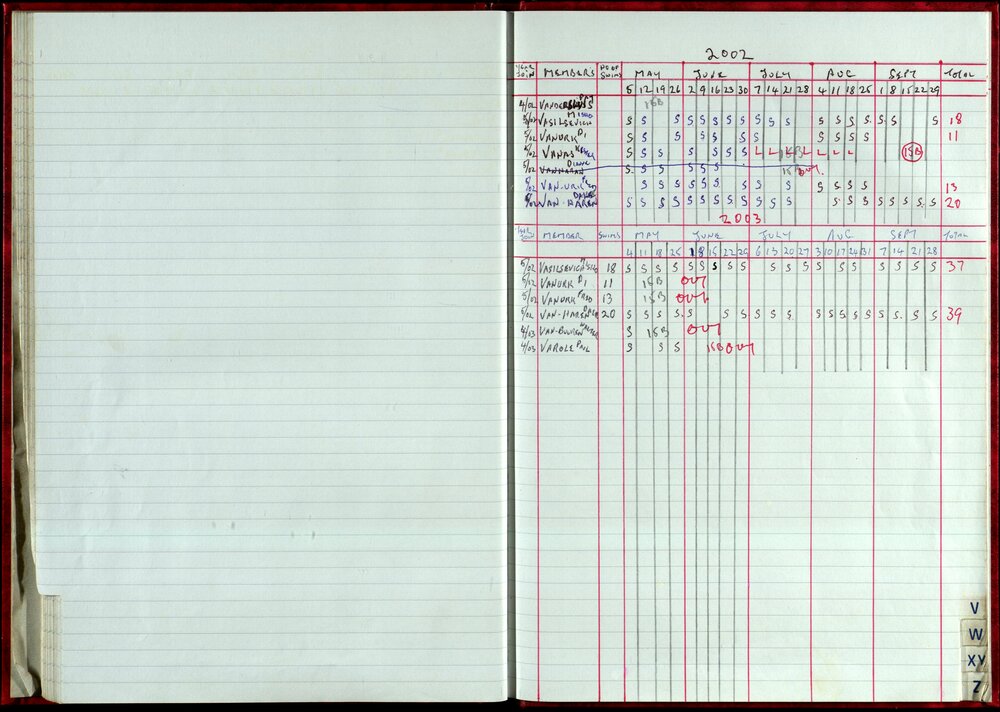 2002
YEAR JOIN MEMBERS NO OF SWIMS MAY JUNE JULY AUG SEPT TOTAL
5 12 19 26 2 9 16 23 30 7 14 21 28 4 11 18 25 1 8 15 22 29
4/02 PAT 15B
5/02 VASILSEVICH S S S S S S S S S S S S S S S S S S 18
5/02 VANURK DI S S S S S S S S S S S 11
5/02 VANAS S S S S S S S L L L L L L L 15B
5/02 DIANE S S S S S S 15B OUT
5/02 VAN-URK FRED S S S S S S S S S S S S S 13
5/02 VAN-HAREN DAVE S S S S S S S S S S S S S S S S S S S S 20
2003
YEAR JOIN MEMBER SWIMS MAY JUNE JULY AUG SEPT TOTAL
4 11 18 25 1 8 15 22 29 6 13 20 27 3 10 17 24 31 7 14 21 28
5/02 VASILSEVICH 18 S S S S S S S S S S S S S S S S S S S 37
5/02 VANURK DI 11 15B OUT
5/02 VANURK FRED 13 15B OUT
5/02 VAN-HAREN DAVE 20 S S S S S S S S S S S S S S S S S S S 39
4/03 VAN-BUUREN WALTER S 15B OUT
4/03 VAROLE PAUL S S S 15B OUT
V
W
XY
Z